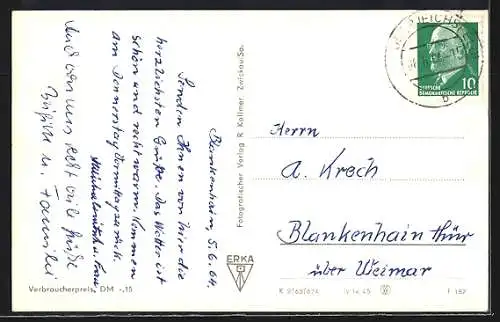 Blankenhain, 5.6.64.
Senden Ihnen von hier die
herzlichsten Grüße. Das Wetter ist
schön und recht warm. Kommen
am Donnerstag Vormittag zurück.
u. Frau
Und von uns recht viele Grüße
Brigitte u. Familie
Verbraucherpreis, DM -,15
Fotografischer Verlag R Kallmer Zwickau/Sa.
ERKA
DEUTSCHE
DEMOKRATISCHE REPUBLIK
10
b
Herrn
A. Krech
Blankenhain Thür
über Weimar
IV 14 45